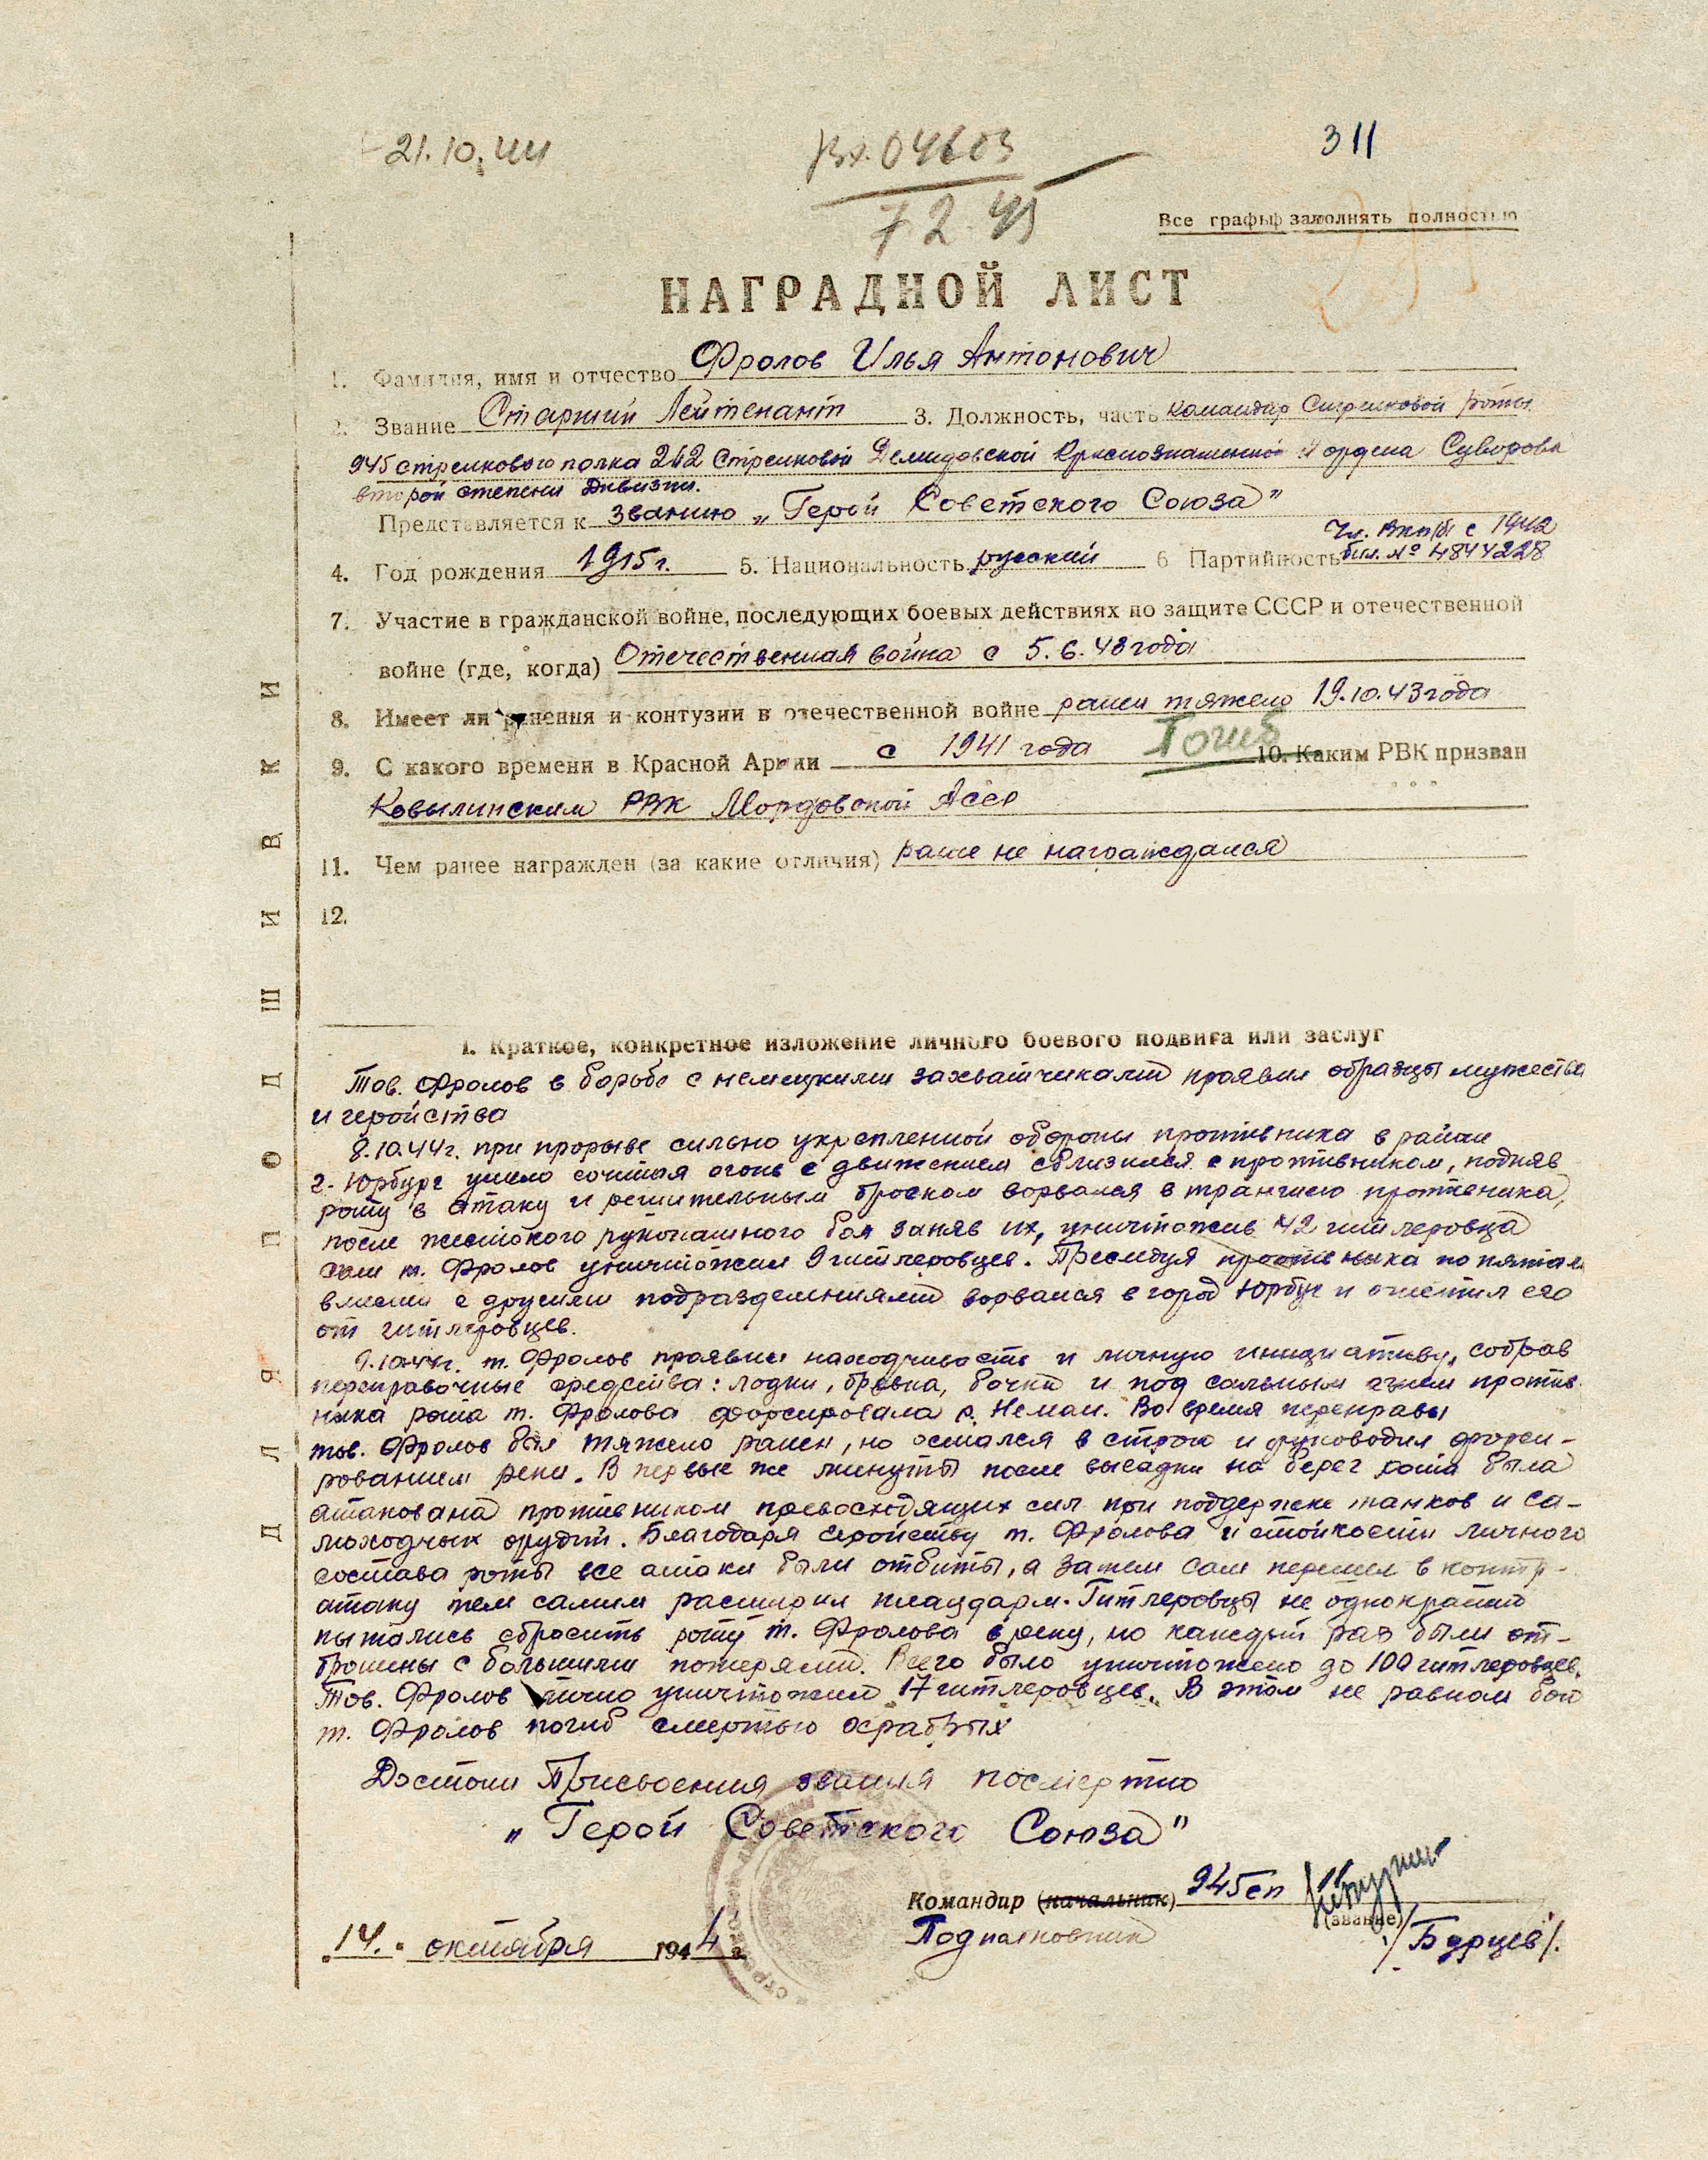 21.10.44
Вх. 04603
7 2 45
311
Все графы заполнять полностью
НАГРАДНОЙ ЛИСТ
1. Фамилия, имя и отчество Фролов Илья Антонович
2. Звание Старший Лейтенант 3. Должность, часть командир Стрелковой роты
945 стрелкового полка 262 Стрелковой Демидовской Краснознаменной И ордена Суворова
второй степени Дивизии.
Представляется к званию „Герой Советского Союза"
4. Год рождения 1915 г. 5. Национальность русский 6 Партийность Чл. ВКП(б) с 1942
бил. № 4844228
7. Участие в гражданской войне, последующих боевых действиях по защите СССР и отечественной
войне (где, когда) Отечественная война с 5.6.43 года
8. Имеет ли ранения и контузии в отечественной войне ранен тяжело 19.10.43 года
9. С какого времени в Красной Армии с 1941 года Погиб 10. Каким РВК призван
Ковылинским РВК Мордовской Асср
11. Чем ранее награжден (за какие отличия) ранее не награждался
12.
ДЛЯ ПОДШИВКИ
I. Краткое, конкретное изложение личного боевого подвига или заслуг
Тов. Фролов в борьбе с немецкими захватчиками проявил образцы мужества
и геройства
8.10.44г. при прорыве сильно укрепленной обороны противника в районе
г. Юрбург умело сочетая огонь с движением сблизился с противником, подняв
роту в атаку и решительным броском ворвался в траншею противника,
после жестокого рукопашного боя заняв их, уничтожив 42 гитлеровца
сам т. Фролов уничтожил 9 гитлеровцев. Преследуя противника по пятам
вместе с другими подразделениями ворвался в город Юрбург и очистил его
от гитлеровцев.
9.10.44г. т. Фролов проявил находчивость и личную инициативу, собрав
переправочные средства: лодки, бревна, бочки и под сильным огнем против
ника рота т. Фролова форсировала р. Неман. Во время переправы
тов. Фролов был тяжело ранен, но остался в строю и руководил форси-
рованием реки. В первые же минуты после высадки на берег рота была
атакована противником превосходящих сил при поддержке танков и са-
моходных орудий. Благодаря геройству т. Фролова и стойкости личного
состава роты все атаки были отбиты, а затем сам перешел в контр-
атаку тем самым расширил плацдарм. Гитлеровцы не однократно
пытались сбросить роту т. Фролова в реку, но каждый раз были от-
брошены с большими потерями. Всего было уничтожено до 100 гитлеровцев.
Тов. Фролов лично уничтожил 17 гитлеровцев. В этом не равном бою
т. Фролов погиб смертью храбрых
Достоин Присвоения звания посмертно
„Герой Советского Союза"
Командир (начальник) 945 сп
(звание)
Подполковник /Бурцев/.
„14." октября 1944 г.